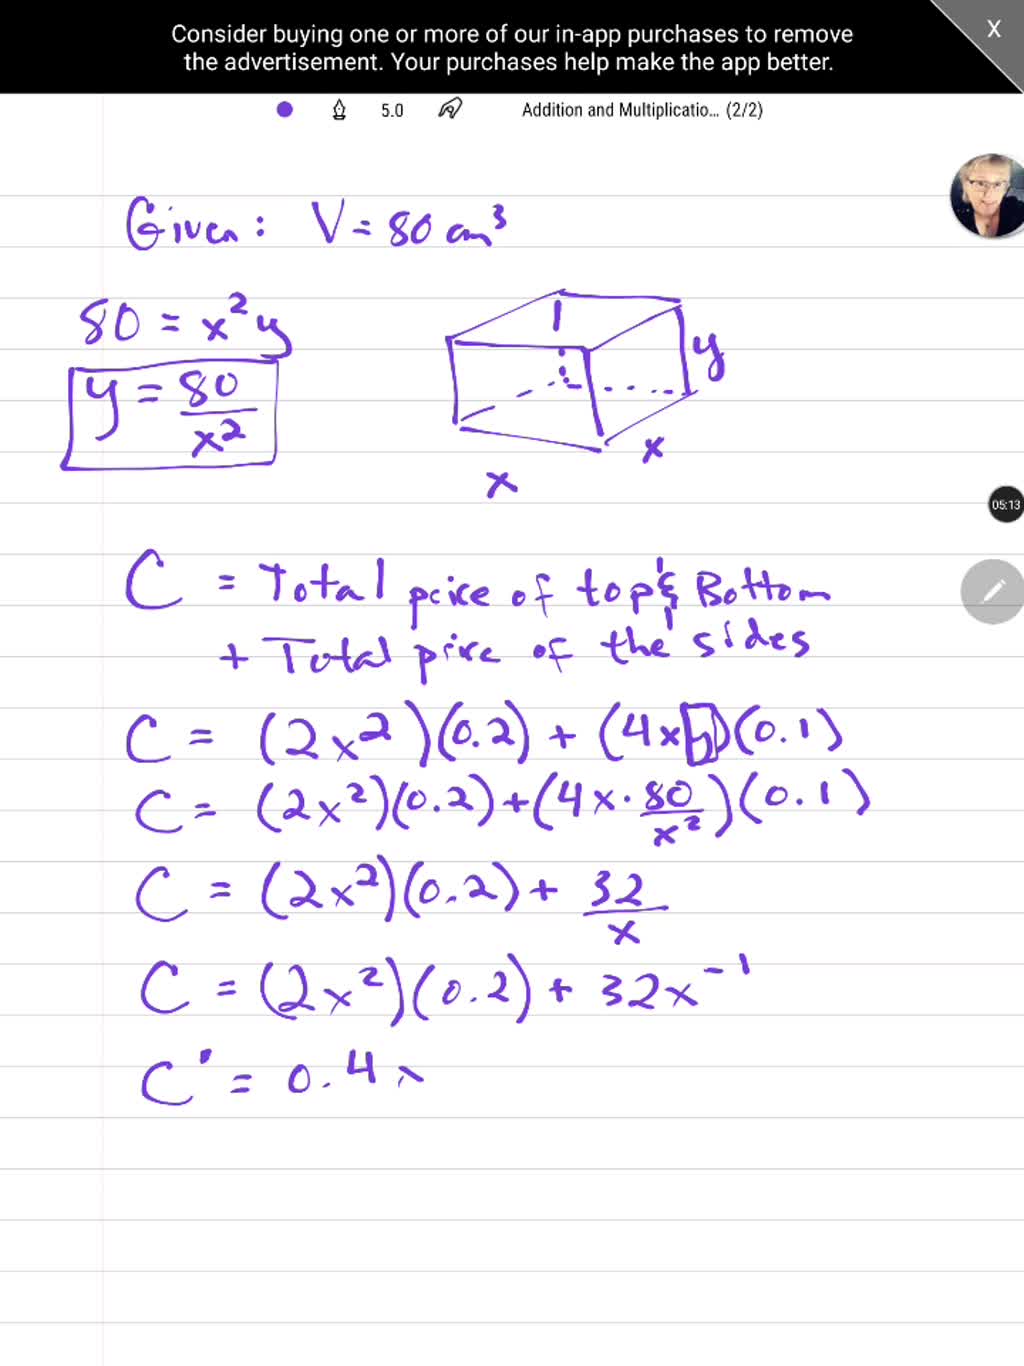 Consider buying one or more of our in-app purchases to remove
the advertisement. Your purchases help make the app better.
X
5.0 Addition and Multiplicatio... (2/2)
Given: V = 80 cm³
80 = x²y
y = 80/x²
y
x
x
05:13
C = Total price of top & Bottom
+ Total price of the sides
C = (2x²)(0.2) + (4xy)(0.1)
C = (2x²)(0.2) + (4x · 80/x²)(0.1)
C = (2x²)(0.2) + 32/x
C = (2x²)(0.2) + 32x⁻¹
C' = 0.4x